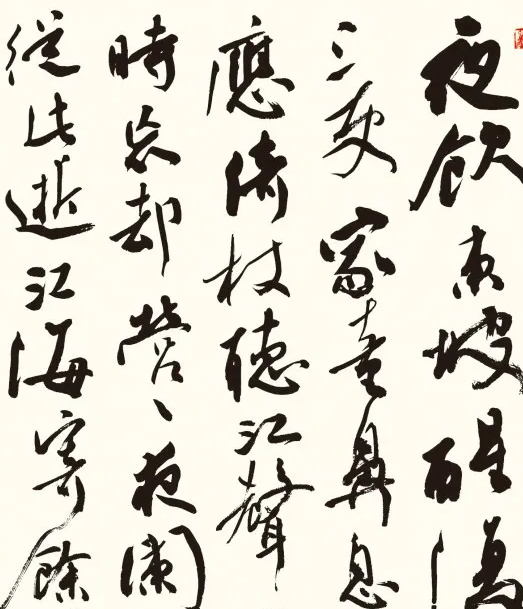 夜飲東坡醒復
三更家童鼻息
應倚杖聽江聲
時忘却營々夜闌
從此逝江海寄餘